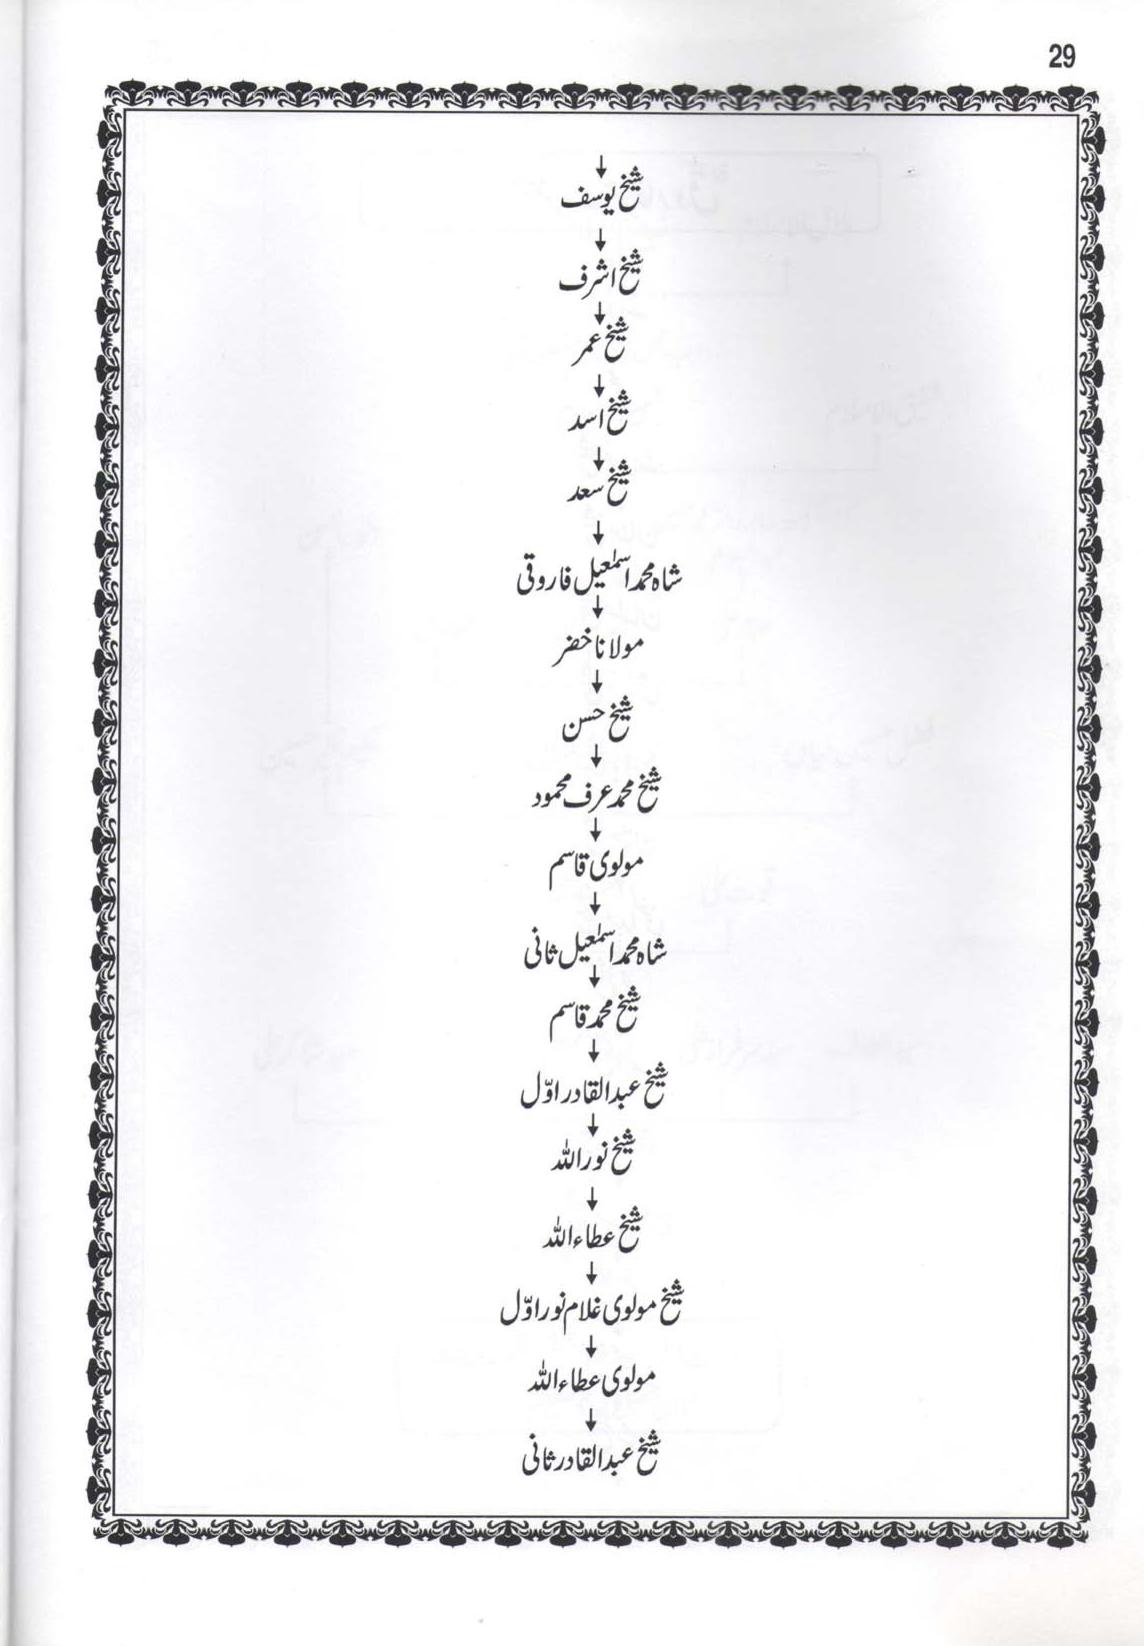 29
↓
شیخ یوسف
↓
شیخ اشرف
↓
شیخ عمر
↓
شیخ اسد
↓
شیخ سعد
↓
شاہ محمد اسمٰعیل فاروقی
↓
مولانا خضر
↓
شیخ حسن
↓
شیخ محمد عرف محمود
↓
مولوی قاسم
↓
شاہ محمد اسمٰعیل ثانی
↓
شیخ محمد قاسم
↓
شیخ عبدالقادر اوّل
↓
شیخ نور اللہ
↓
شیخ عطاء اللہ
↓
شیخ مولوی غلام نور اوّل
↓
مولوی عطاء اللہ
↓
شیخ عبدالقادر ثانی